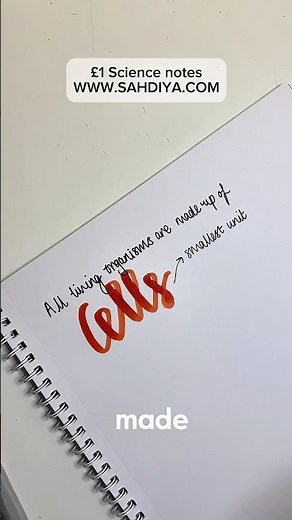 £1 Science notes
WWW.SAHDIYA.COM
All living organisms are made up of
Cells
smallest unit
made